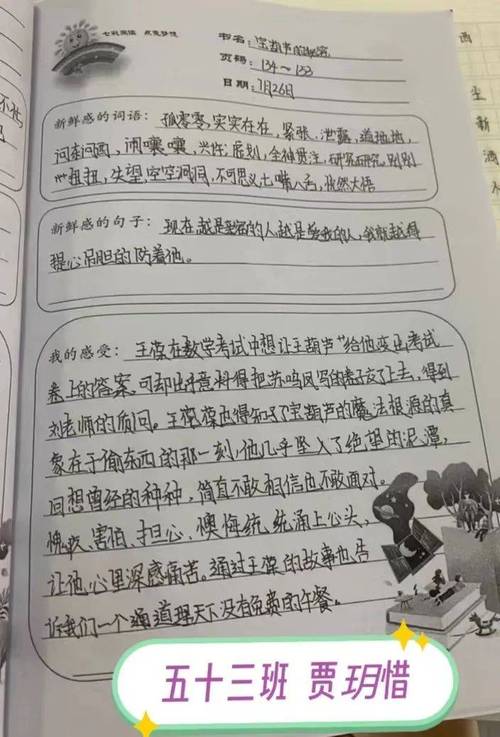 七彩阅读 点亮梦想
书名：宝葫芦的秘密
页码：134～153
日期：7月26日
新鲜感的词语：孤零零，实实在在，紧张，泄露，道地地，
问东问西，闹嚷嚷，兴许，底划，全神贯注，研究研究，别别
扭扭，失望，空空洞洞，不可思义，七嘴八舌，恍然大悟
新鲜感的句子：现在越是的人越是我的人，我就越得
提心吊胆的防着他。
我的感受：王葆在数学考试中想让王葫芦"给他变出考试
卷上的答案，可却出乎意料得把苏鸣凤写的卷子交了上去，得到
刘老师的质问。王葆也得知了宝葫芦的魔法根源的真
象在于偷东西的那一刻，他几乎坠入了绝望的泥潭，
回想曾经的种种，简直不敢相信也不敢面对。
愧疚、害怕、担心、懊悔统统涌上心头，
让他心里深感痛苦。通过王葆的故事也告
诉我们一个道理天下没有免费的午餐。
五十三班 贾玥惜